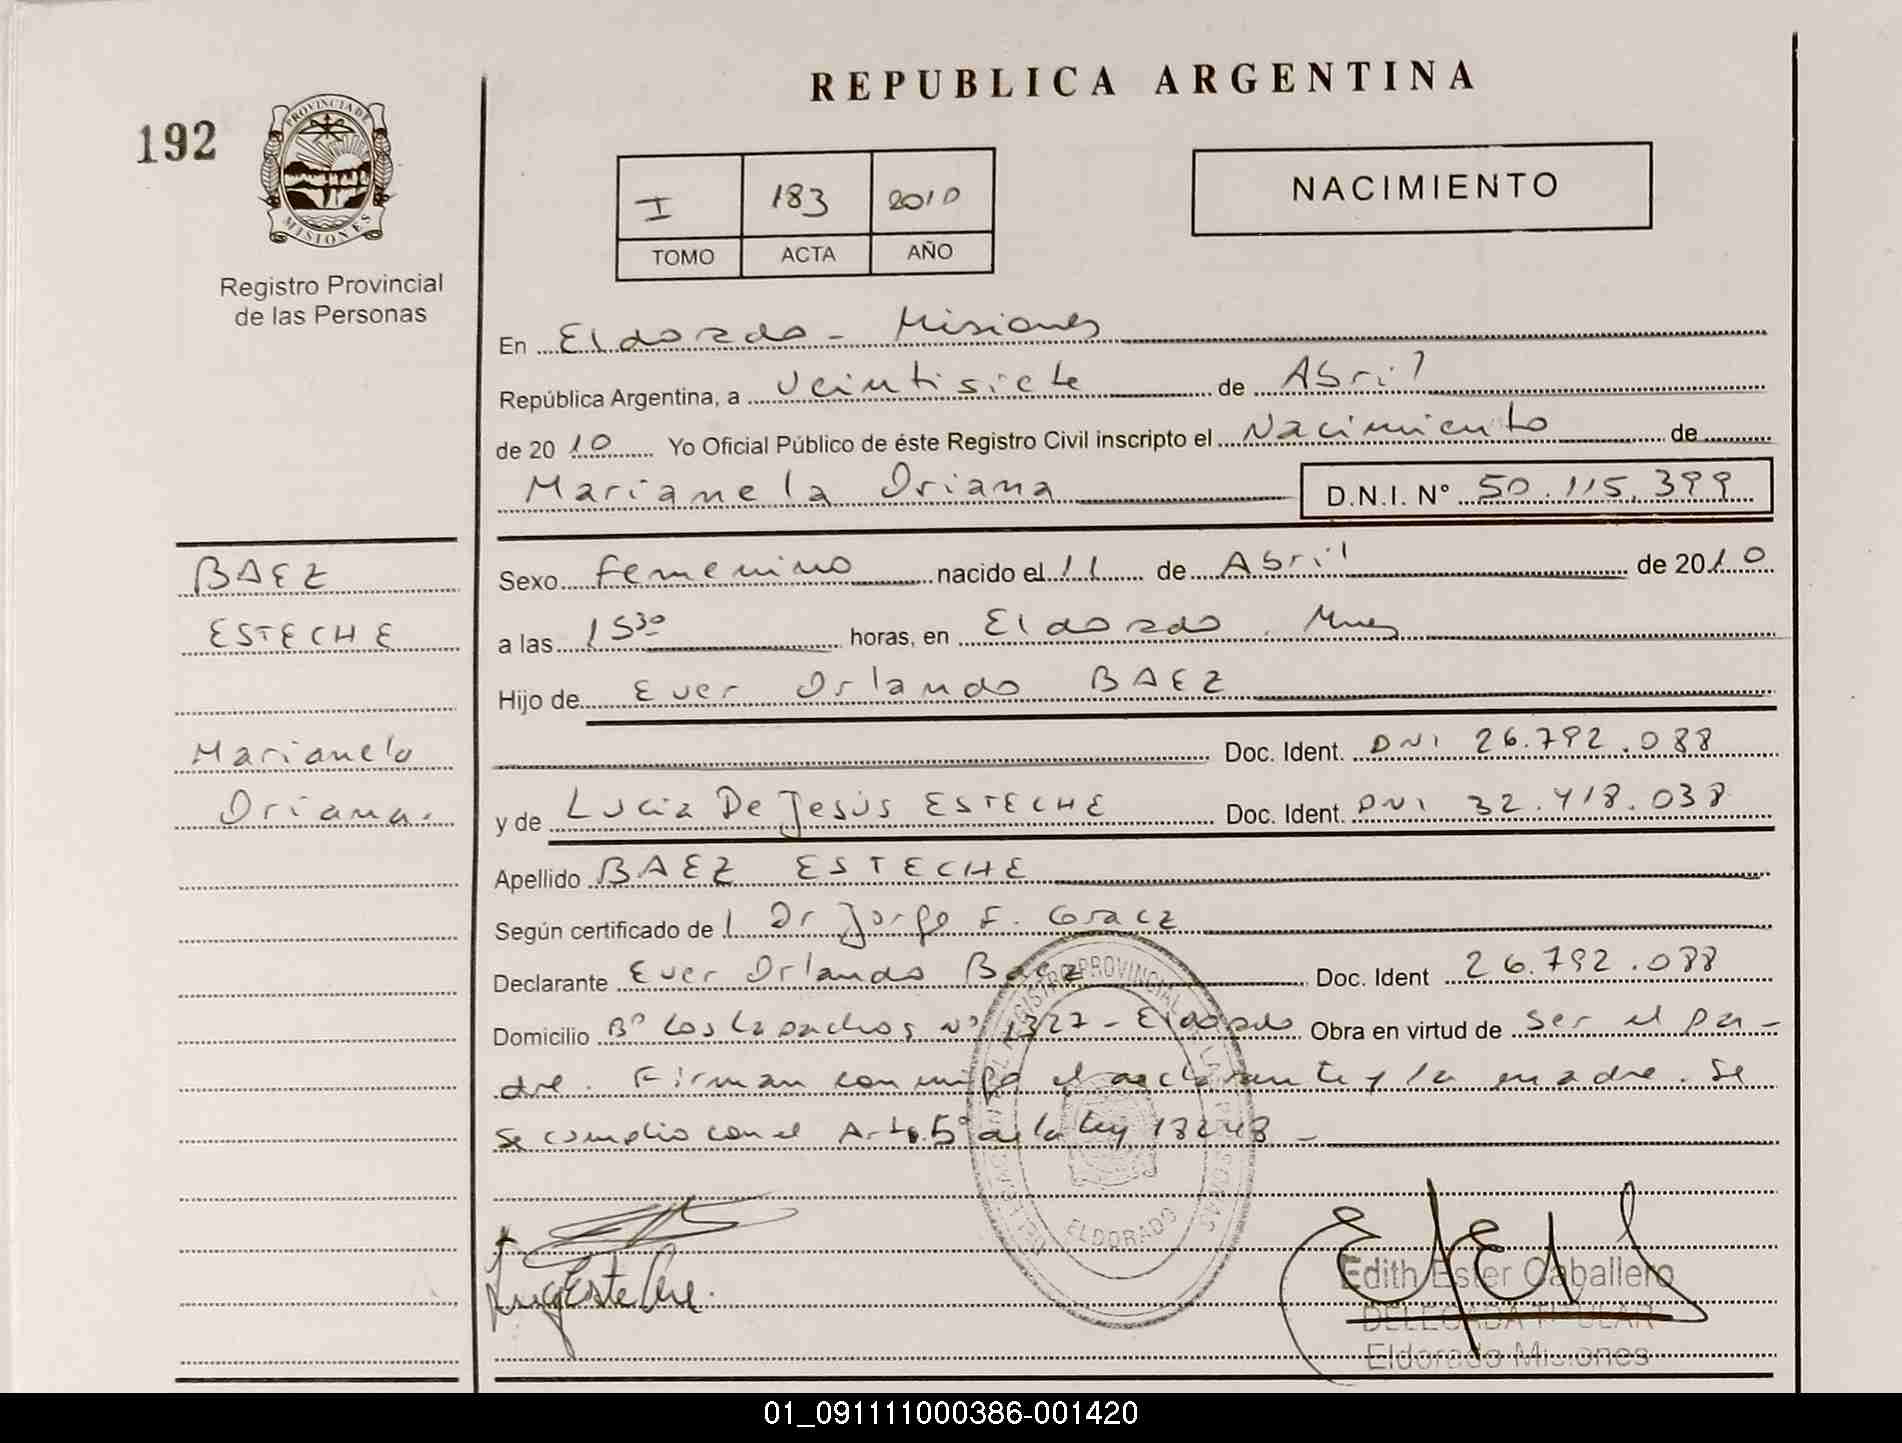 REPUBLICA ARGENTINA
192
PROVINCIA DE
MISIONES
Registro Provincial
de las Personas
I 183 2010
TOMO ACTA AÑO
NACIMIENTO
En Eldorado - Misiones
República Argentina, a Veintisiete de Abril
de 2010 Yo Oficial Público de éste Registro Civil inscripto el Nacimiento de
Marianela Oriana D.N.I. N° 50.115.399
BAEZ
ESTECHE
Marianela
Oriana.
Sexo Femenino nacido el 11 de Abril de 2010
a las 15 30 horas, en Eldorado. Mnes
Hijo de Ever Orlando BAEZ
Doc. Ident. DNI 26.792.088
y de Lucia De Jesús ESTECHE Doc. Ident. DNI 32.418.038
Apellido BAEZ ESTECHE
Según certificado de l Dr Jorge F.
Declarante Ever Orlando Baez Doc. Ident 26.792.088
Domicilio B° Los Lapachos N° 1327 - Eldorado Obra en virtud de ser el pa-
dre. Firman conmigo el declarante y la madre. Se
se cumplio con el Art. 5° de la Ley 18248 -
REGISTRO PROVINCIAL DE LAS PERSONAS
ELDORADO
Edith Ester Caballero
DELEGADA TITULAR
Eldorado Misiones
01_091111000386-001420